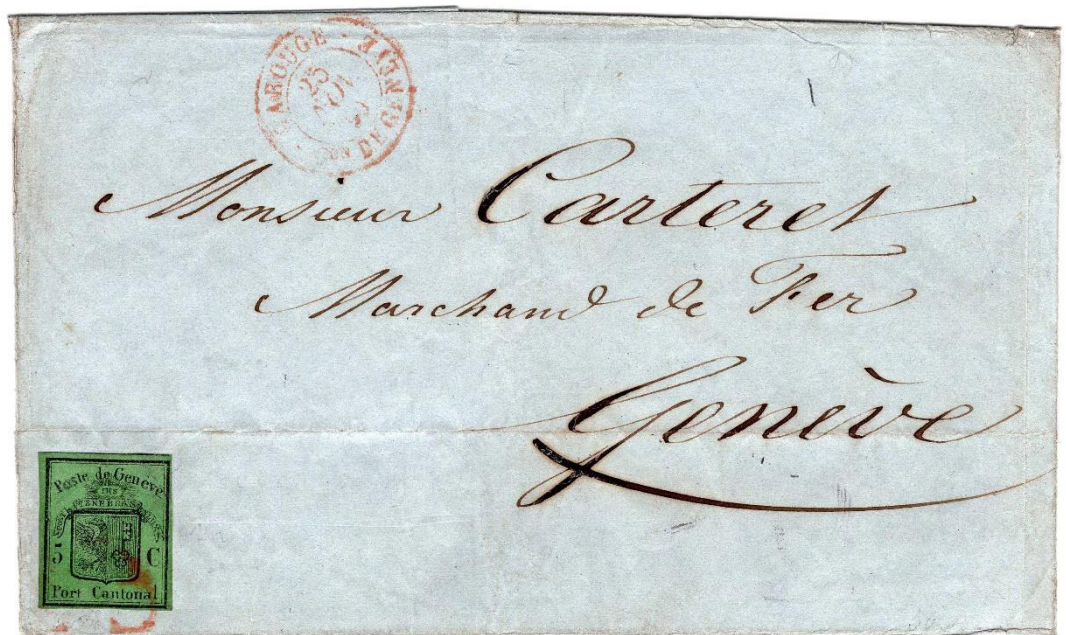 CAROUGE
25
DE GENÈVE
Monsieur Carteret
Marchand de Fer
Genève
Poste de Genève
TENEBRAS
5 C
Port Cantonal